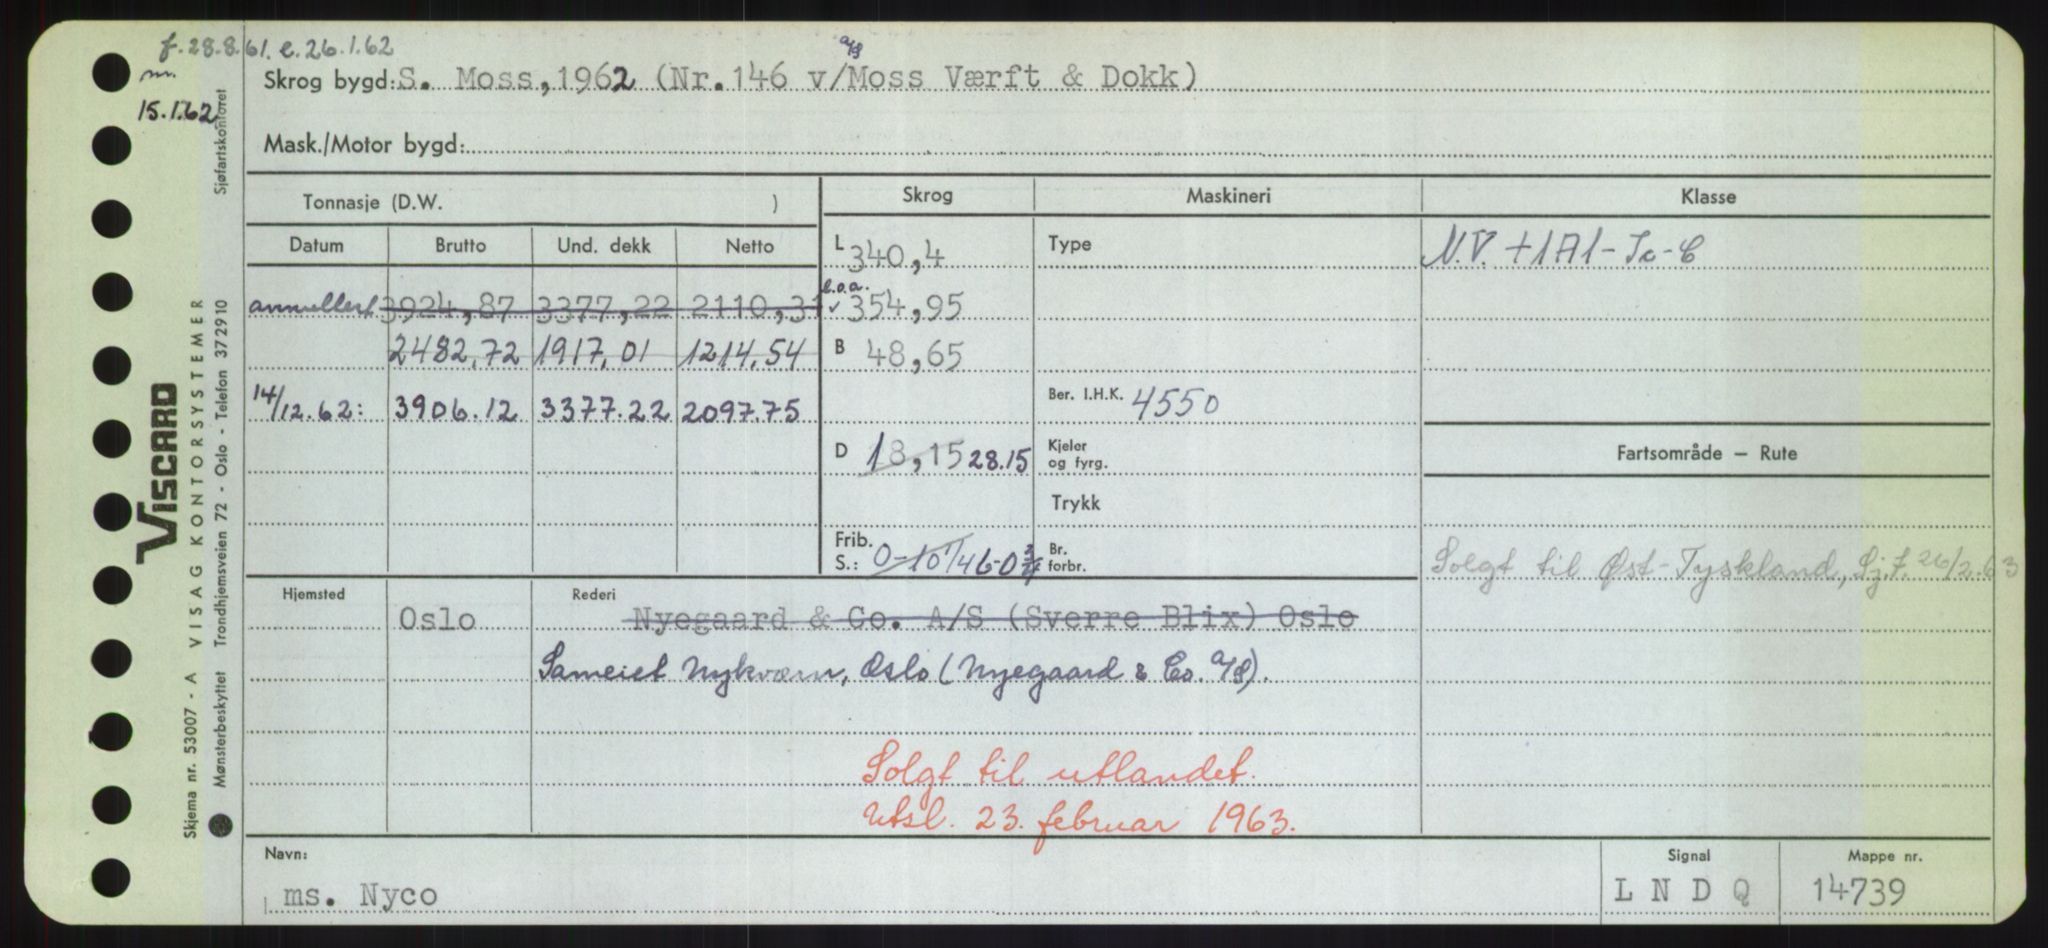 f. 28.8.61. e. 26.1.62
m.
15.1.62
Skrog bygd: S. Moss, 1962 (Nr. 146 v/ a/s Moss Værft & Dokk)
Mask./Motor bygd:
Tonnasje (D.W. ) Skrog Maskineri Klasse
Datum Brutto Und. dekk Netto L 340,4 Type N.V. +1A1-Is-C
annullert 3924,87 3377,22 2110,31 l.o.a. ✓ 354,95
2482,72 1917,01 1214,54 B 48,65
14/12.62: 3906.12 3377.22 2097.75 Ber. I.H.K. 4550
D 18,15 28.15 Kjeler og fyrg. Fartsområde — Rute
Trykk
Frib. S.: 0-10 1/4 6-0 3/4 Br. forbr. Solgt til Øst-Tyskland, Sj.f. 26/2.63
Hjemsted Oslo Rederi Nyegaard & Co. A/S (Sverre Blix) Oslo
Sameiet Nykværn, Oslo (Nyegaard & Co. A/S).
Solgt til utlandet.
Utsl. 23. februar 1963.
Navn: ms. Nyco Signal L N D Q Mappe nr. 14739
Skjema nr. 53007 - A VISAG KONTORSYSTEMER
VISCARD
Mønsterbeskyttet Trondhjemsveien 72 - Oslo - Telefon 372910 Sjøfartskontoret